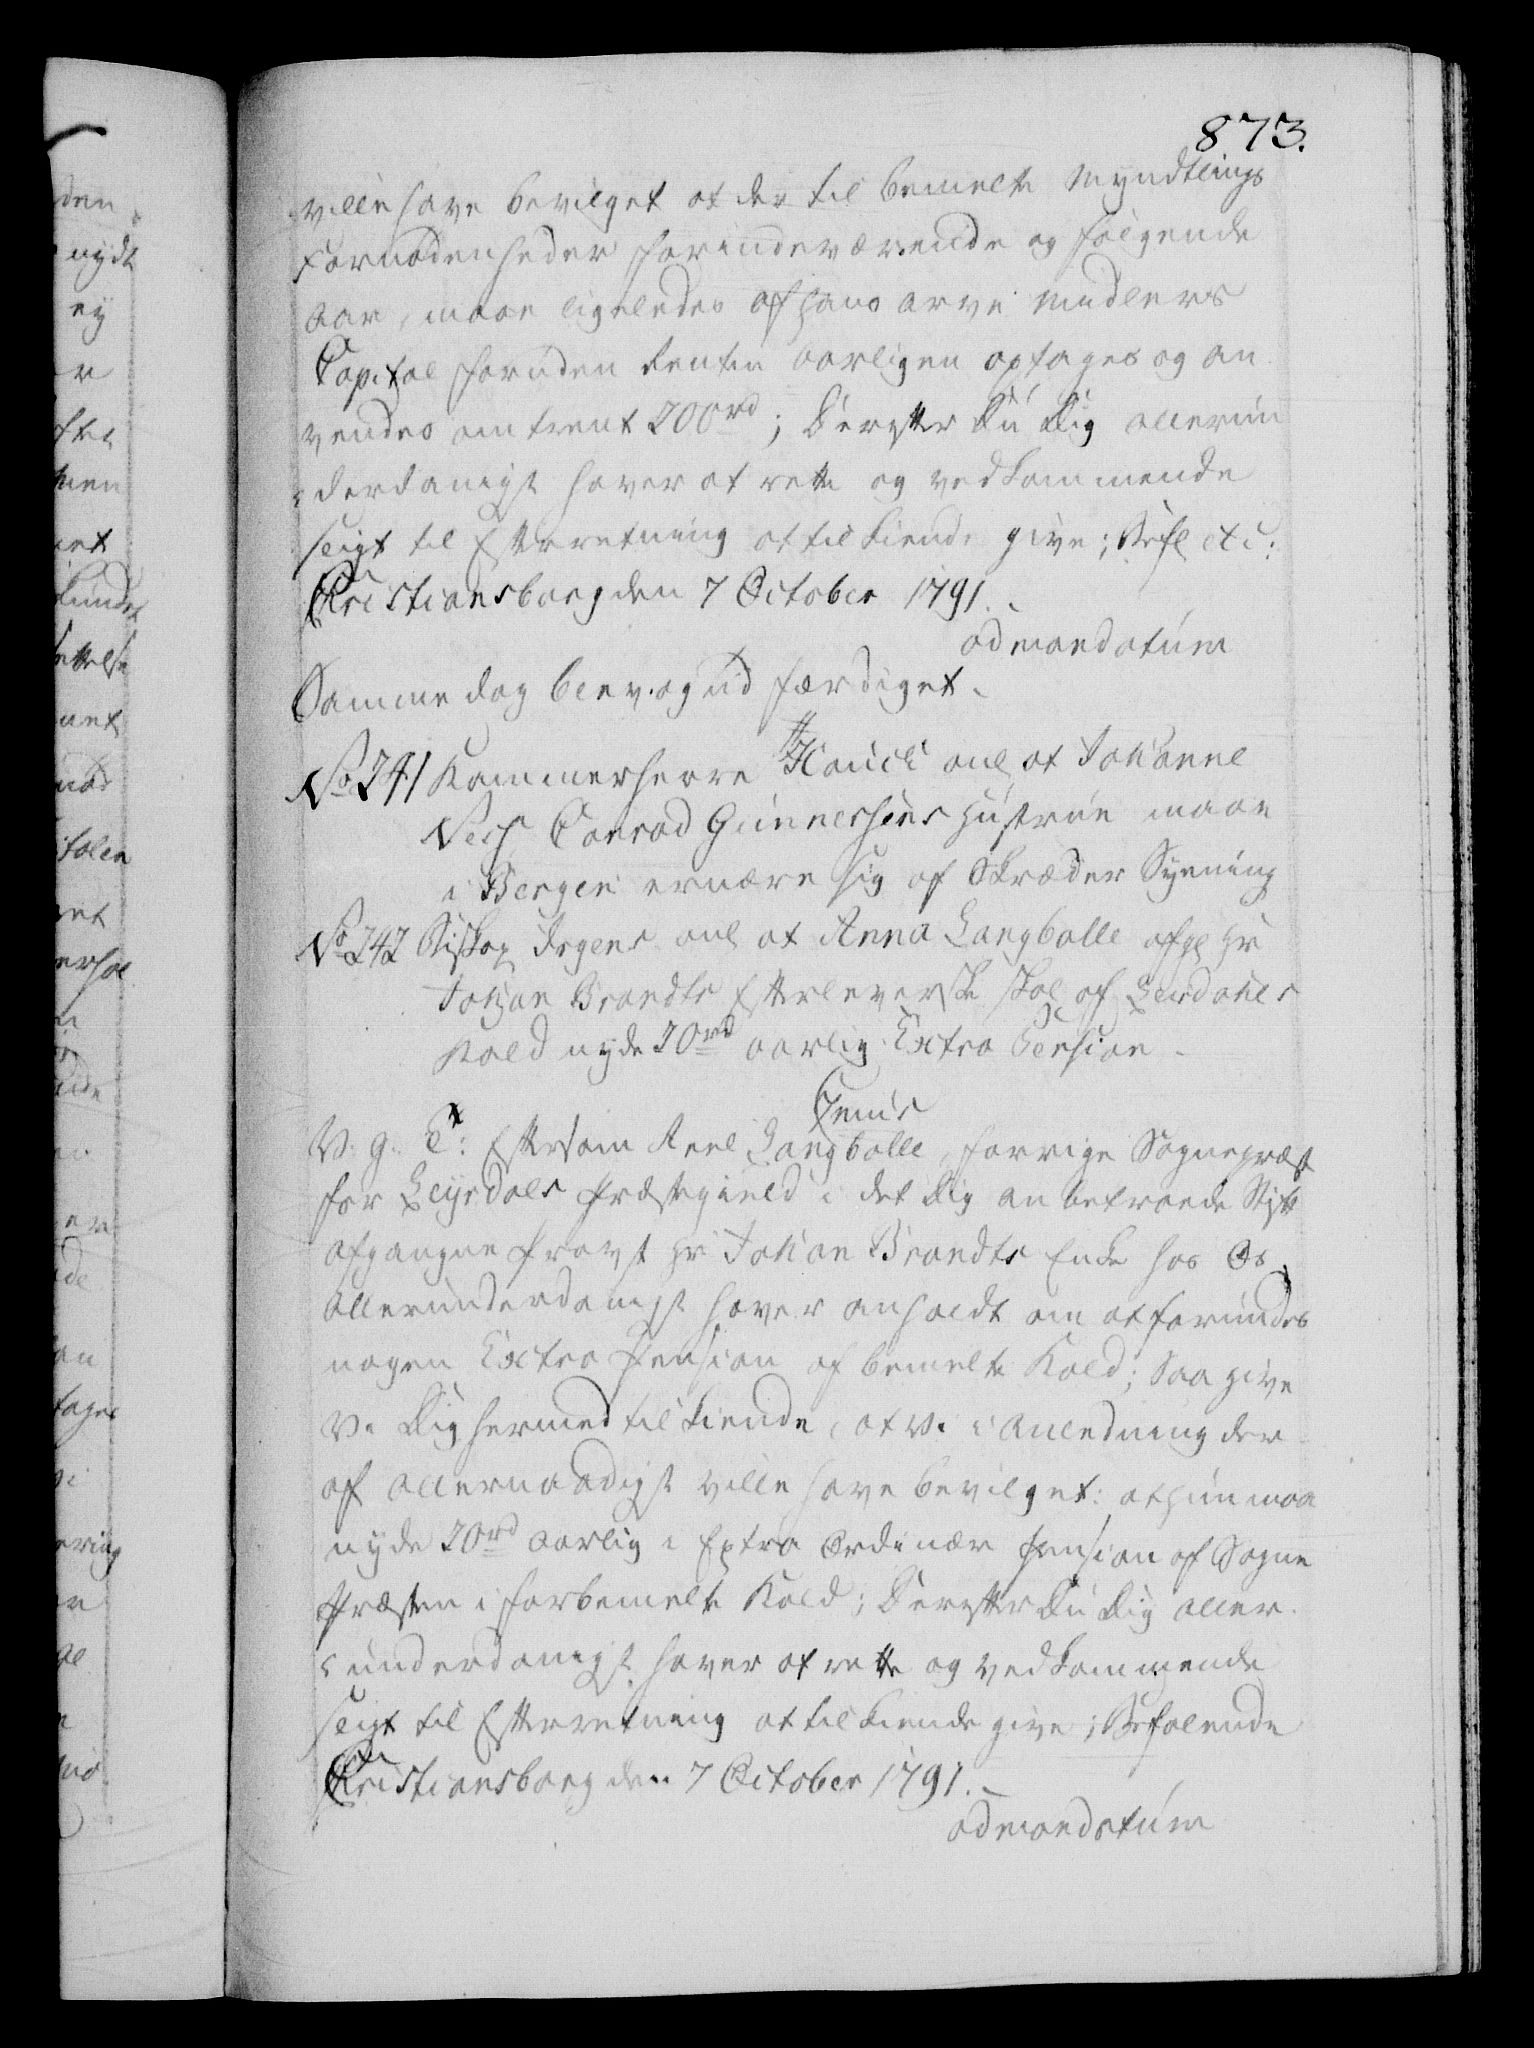 873.
ville have bevilget at der til bemelte Myndtlings
Fornødenheder for indeværende og følgende
Aar, maae ligeledes af hans Arve Midlers
Capital foruden Renten aarligen optages og an
vendes omtrent 200rd; Derefter Du Dig allerun
derdanigst haver at rette og vedkommende
seigt til Efterretning at tilkiende give; Befl etc:
Christiansborg den 7 October 1791.
ad mandatum
Samme dag blev og udfærdiget.
No 241 Kammerherre Hauch anl at Johanne
Conrad Gunnersens Hustrue maae
i Bergen ernære sig af Skræder Syening
No 242 Biskop Irgens anl at Anna Langballe afg Hr
Johan Brandts Efterleverske skal af Leirdahls
Kald nyde 20rd aarlig Extra Pension.
V. G. T: Eftersom Anna Langballe, forrige Sognepræst
for Leyrdals Præstegield i det Dig anbetroede Stift
afgangne Provst Hr Johan Brandts Enke hos Os
allerunderdanigst haver anholdt om at forundes
nogen Extra Pension af bemelte Kald; Saa give
Vi Dig hermed tilkiende, at Vi i Anledning der
af allernaadigst ville have bevilget: at hun maa
nyde 20rd aarlig i Extra Ordinær Pension af Sogne
Præsten i forbemelte Kald; Derefter Du Dig aller
underdanigst haver at rette og vedkommende
seigt til Efterretning at tilkiende give; Befalende
Christiansborg den 7 October 1791.
ad mandatum